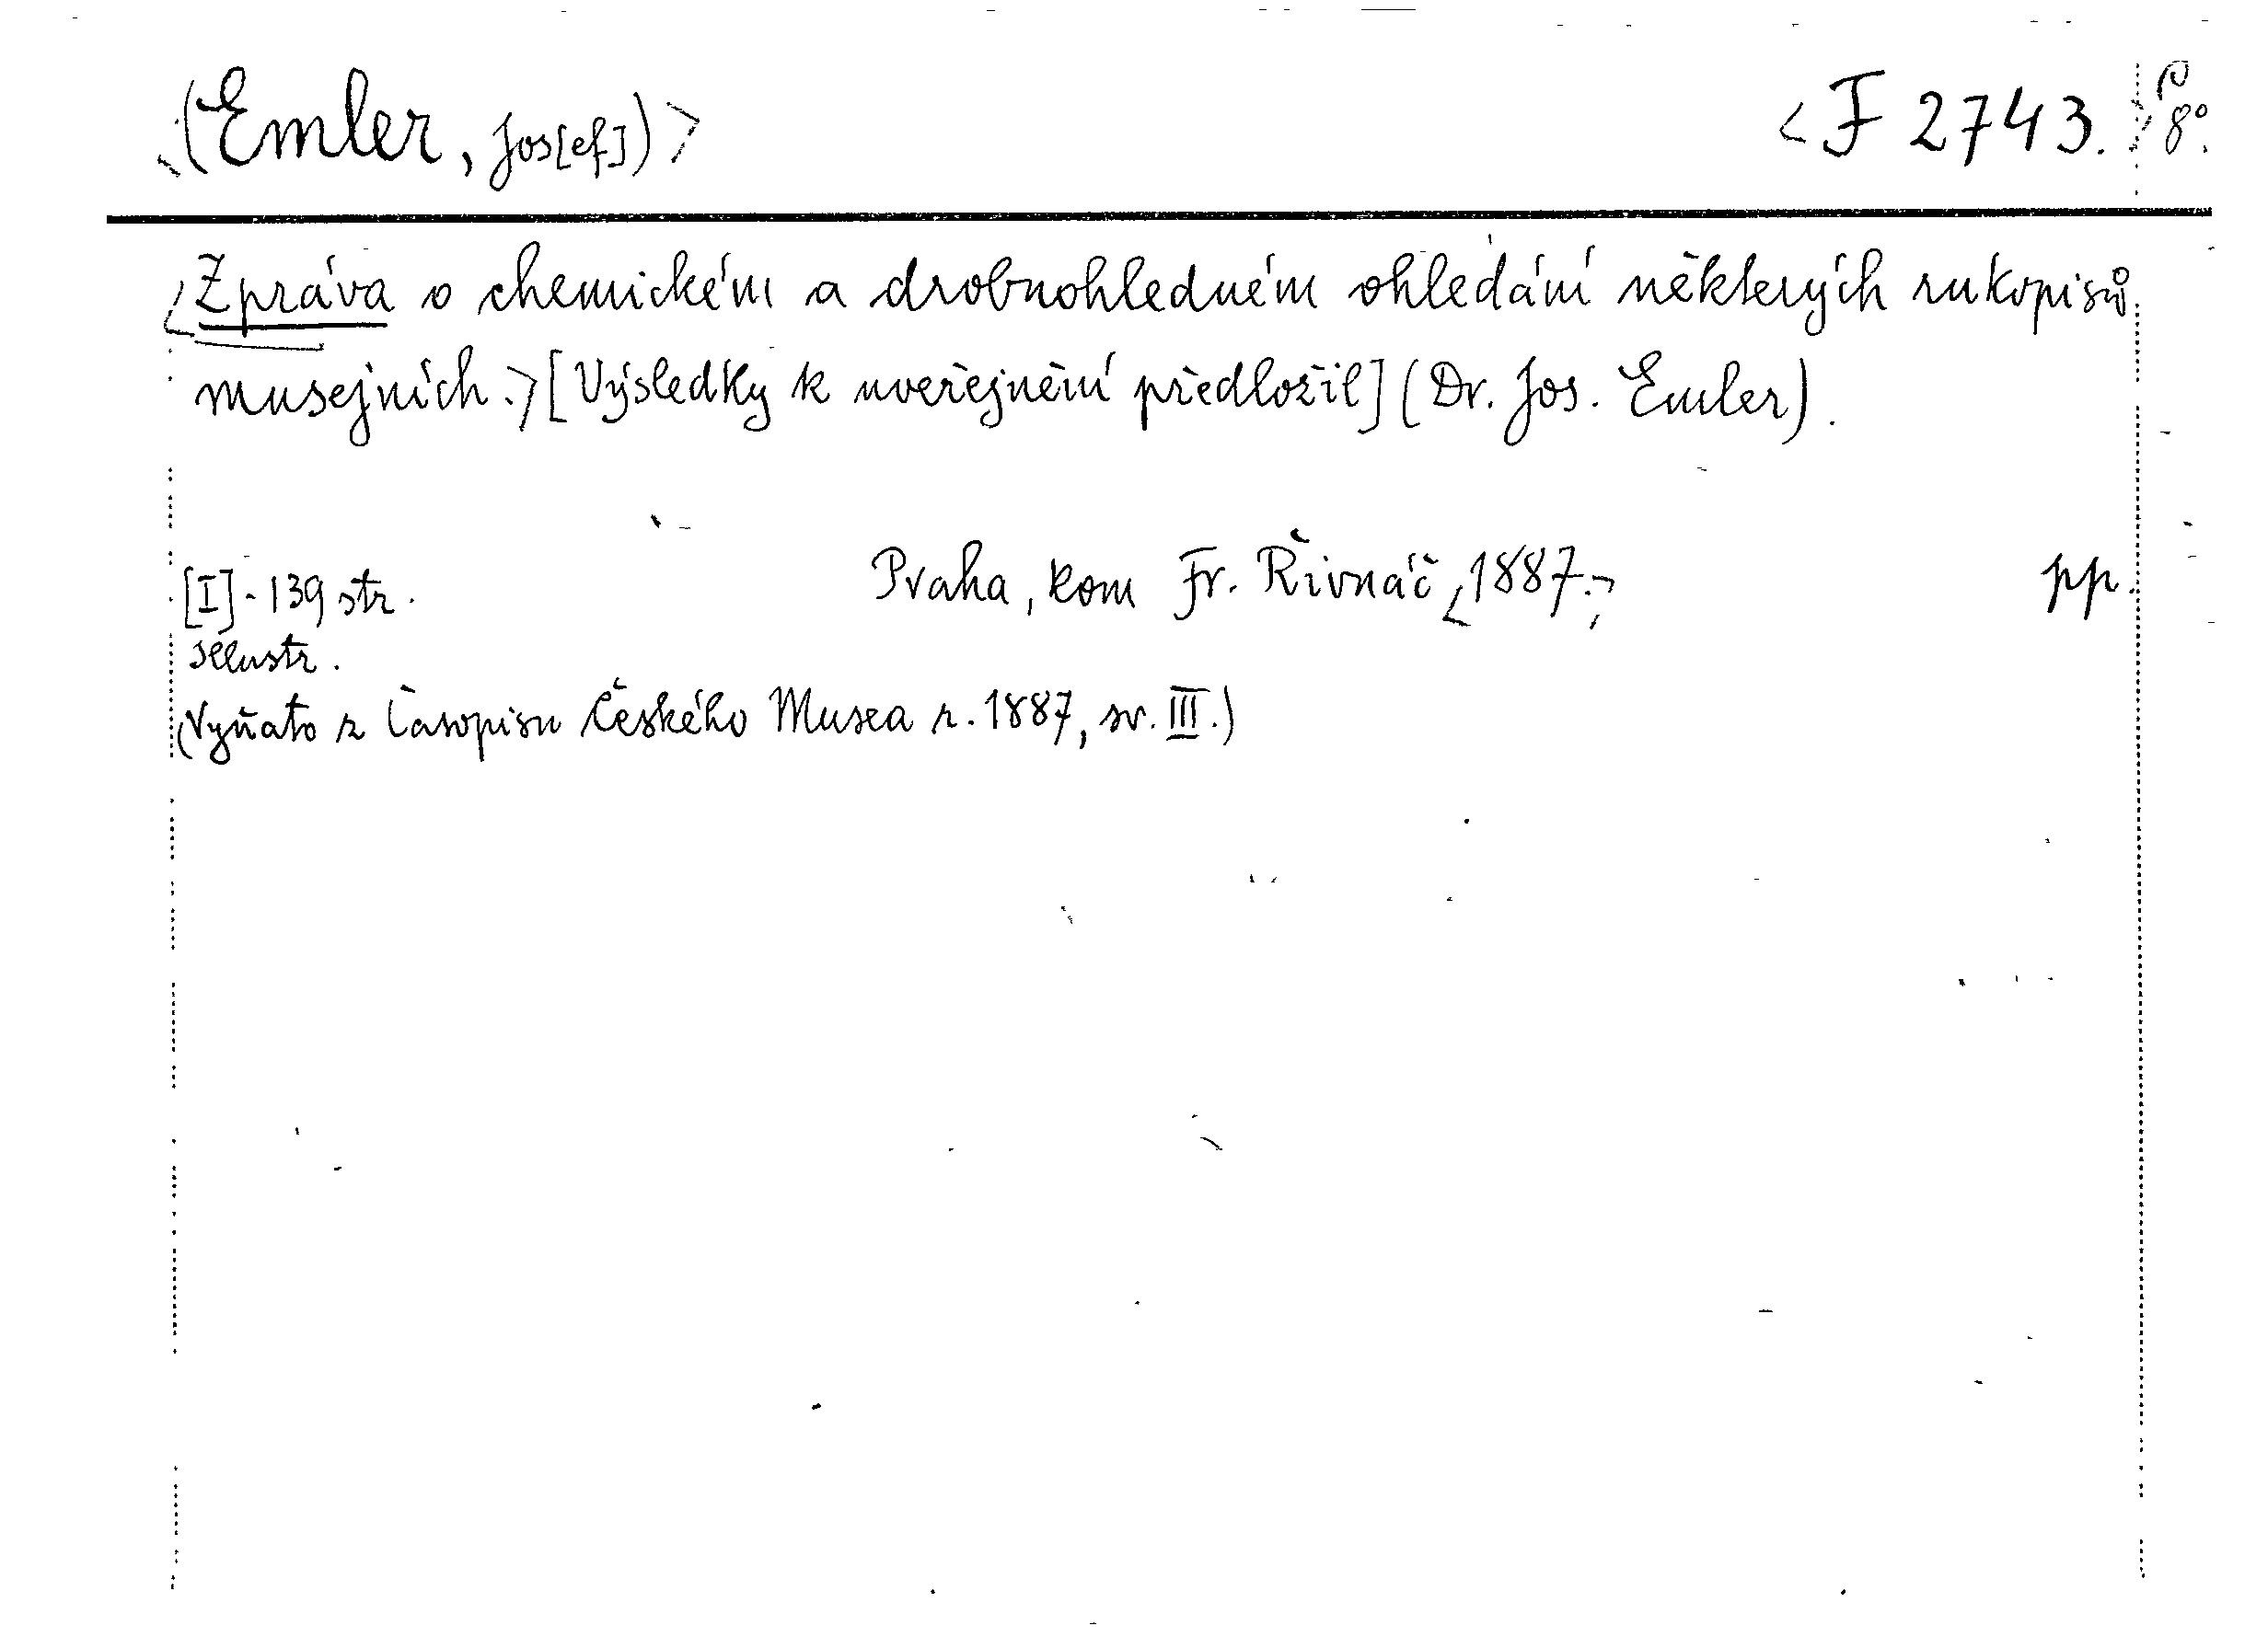 <(Emler, Jos[ef])> <F 2743.> 8°.
<Zpráva o chemickém a drobnohledném ohledání některých rukopisů
musejních.>[Výsledky k uveřejnění předložil](Dr. Jos. Emler).
[I]-139 str. Praha, kom Fr. Řivnáč <1887.> pp.
illustr.
(Vyňato z Časopisu Českého Musea r. 1887, sv. III.)